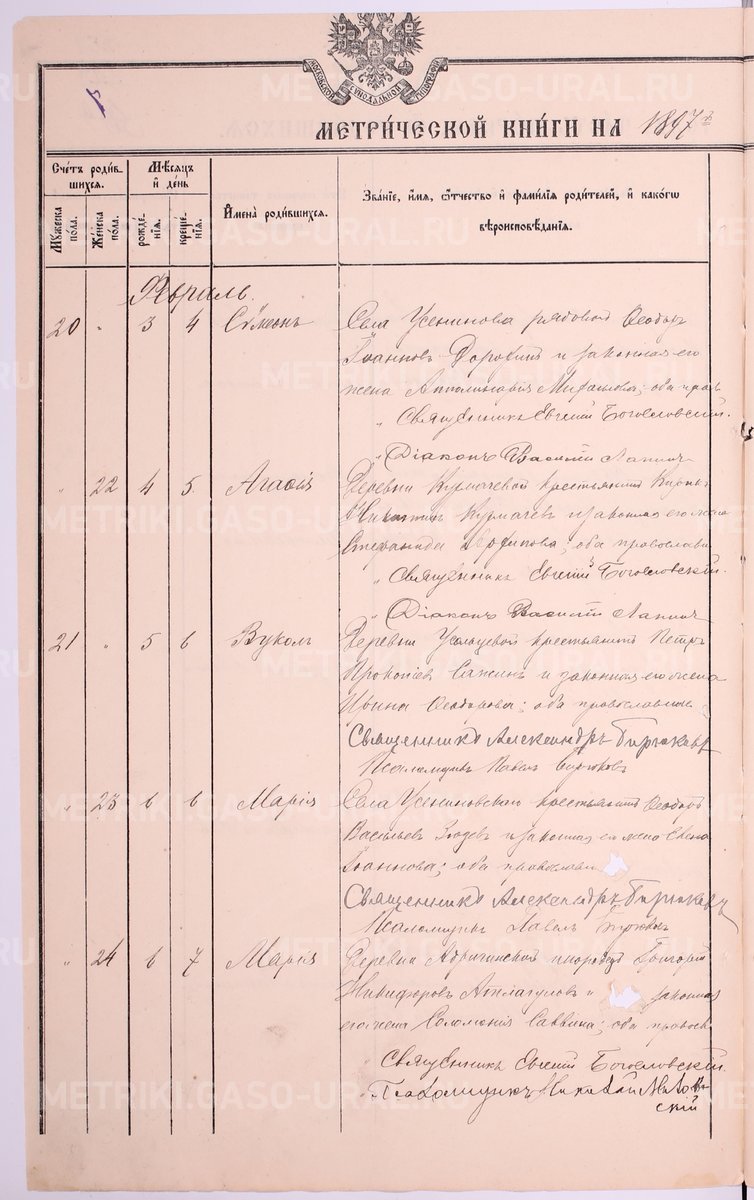 МОСКОВСКОЙ СѴНОДАЛЬНОЙ ТИПОГРАФІИ
МЕТРИ́ЧЕСКОЙ КНИ́ГИ НА 1897 й
Сче́тъ роди́вшихся.
Мѣ́сяцъ и҆ де́нь
И҆мена̀ роди́вшихся.
Зва́нїе, и҆́мя, ѻ҆́тчество и҆ фами́лїя роди́телей, и҆ како́гѡ вѣроисповѣ́данїя.
Мꙋ́жеска по́ла.
Же́нска по́ла.
рожде́нїя.
креще́нїя.
Февраль.
20 " 3 4 Сѵмеонъ Села Усенинова рядовой Ѳеодоръ
Іоанновъ и законная его
жена Апполинарія ; оба прав.
" Священникъ Евгеній Богословскій.
" Діаконъ Василій
" 22 4 5. Агаѳія Деревни Курмачевой крестьянинъ
Никитинъ Курмачевъ и законная его жена
Стефанида ; оба православн.
" Священникъ Евгеній Богословскій.
" Діаконъ Василій
21 " 5 6 Вуколъ Деревни крестьянинъ Петръ
Прокопіевъ Сажинъ и законная его жена
Ѳеодорова; оба православные.
Священникъ Александръ Бирюковъ
Псаломщикъ Павелъ Бирюковъ
" 23 6 6 Марія Села Усениновскаго крестьянинъ Ѳеодоръ
Васильевъ и законная его жена Елена
Іоаннова; оба православн
Священникъ Александръ Бирюковъ
Псаломщикъ Павелъ Бирюковъ
" 24 6 7 Марія Деревни инородецъ Григорій
Никифоровъ законная
его жена Соломонія Саввина; оба правосл.
Священникъ Евгеній Богословскій.
Псаломщикъ Николай
скій
METRIKI.GASO-URAL.RU